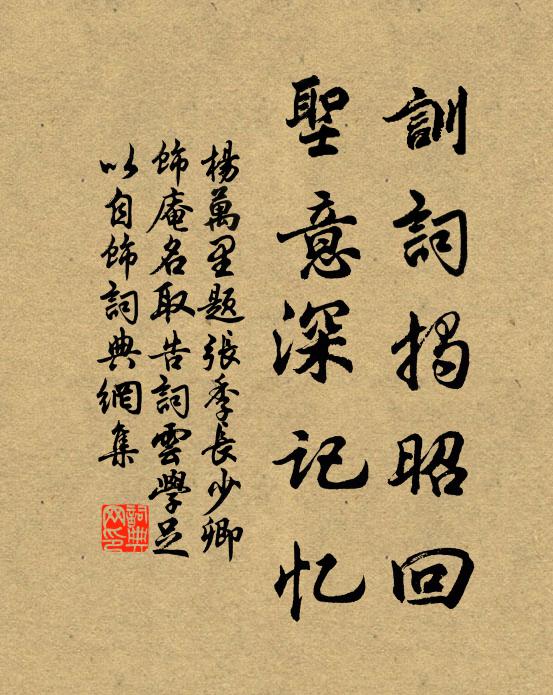 訓詞揭昭回
聖意深记忆
楊萬里題張季長少卿
飾庵名取告詞雲學足
以自飾詞典網集
詞典
网印